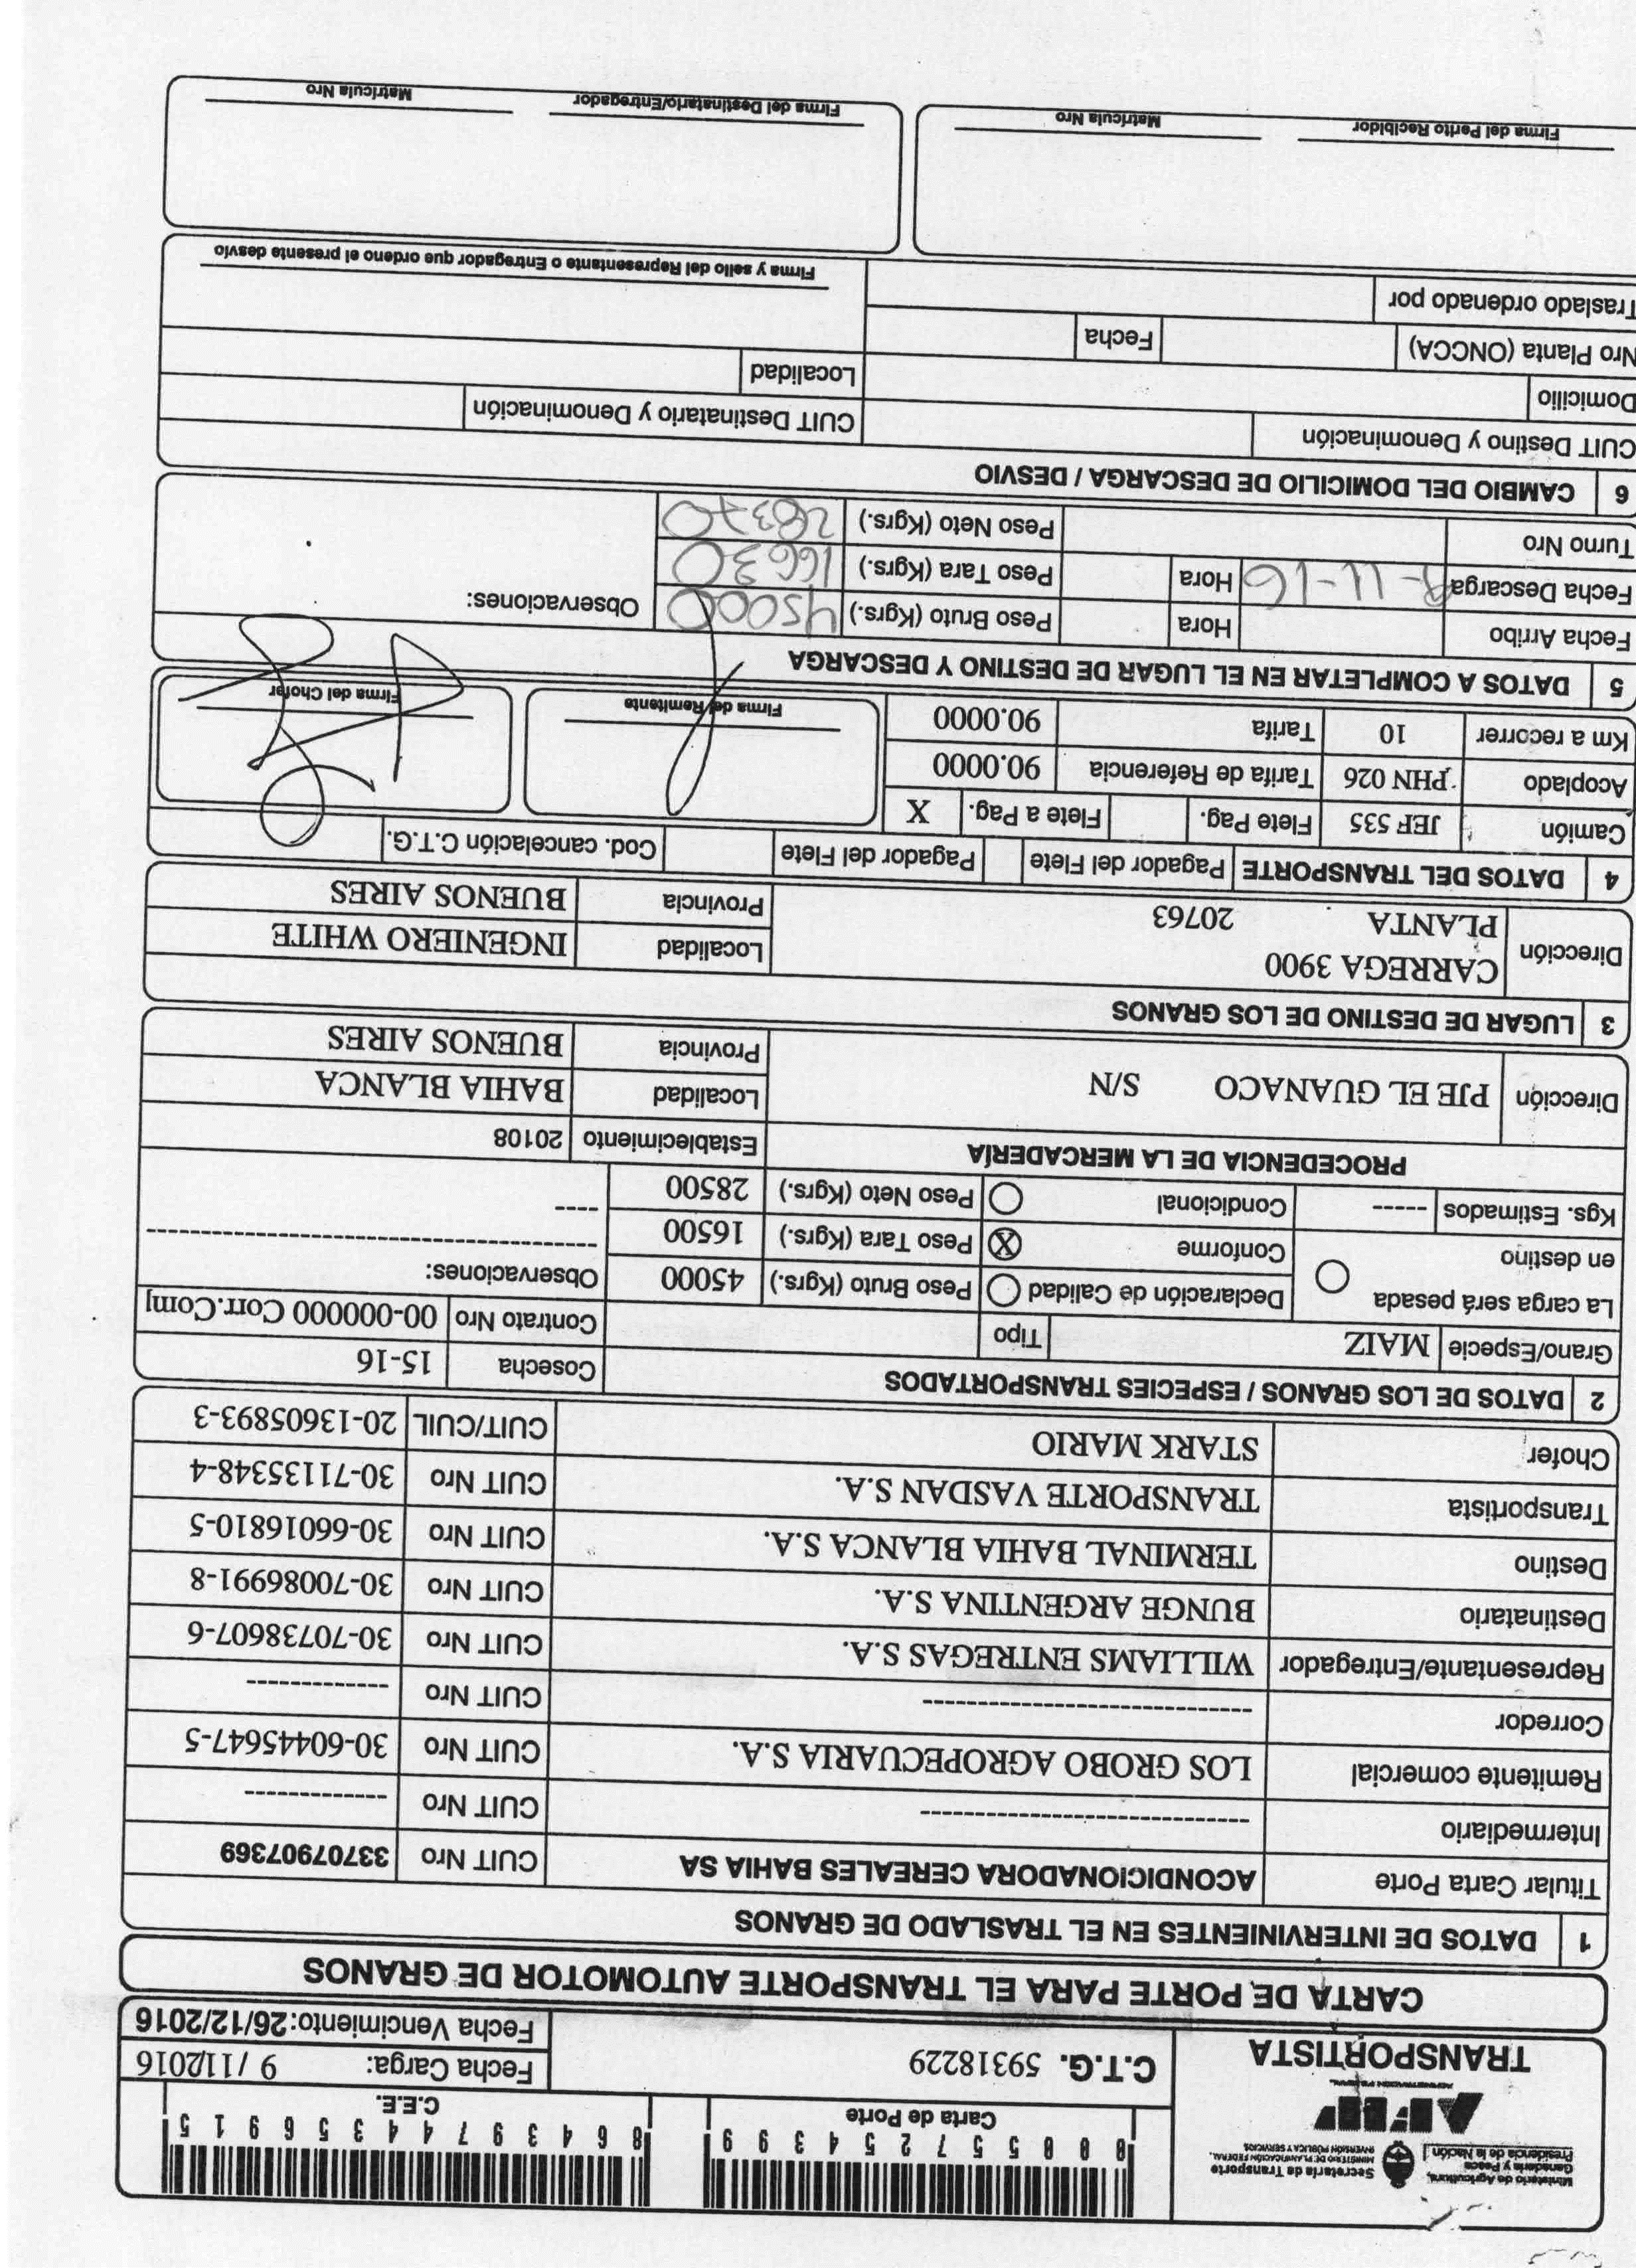 Ministerio de Agricultura,
Ganadería y Pesca
Presidencia de la Nación
Secretaría de Transporte
MINISTERIO DE PLANIFICACIÓN FEDERAL,
INVERSIÓN PÚBLICA Y SERVICIOS
AFIP
TRANSPORTISTA
000557254399
Carta de Porte
86439744356915
C.E.E.
C.T.G. 59318229
Fecha Carga: 9 /11/2016
Fecha Vencimiento:26/12/2016
CARTA DE PORTE PARA EL TRANSPORTE AUTOMOTOR DE GRANOS
1 DATOS DE INTERVINIENTES EN EL TRASLADO DE GRANOS
Titular Carta Porte ACONDICIONADORA CEREALES BAHIA SA CUIT Nro 33707907369
Intermediario ------------------------------ CUIT Nro -------------
Remitente comercial LOS GROBO AGROPECUARIA S.A. CUIT Nro 30-60445647-5
Corredor ------------------------------ CUIT Nro -------------
Representante/Entregador WILLIAMS ENTREGAS S.A. CUIT Nro 30-70738607-6
Destinatario BUNGE ARGENTINA S.A. CUIT Nro 30-70086991-8
Destino TERMINAL BAHIA BLANCA S.A. CUIT Nro 30-66016810-5
Transportista TRANSPORTE VASDAN S.A. CUIT Nro 30-71135348-4
Chofer STARK MARIO CUIT/CUIL 20-13605893-3
2 DATOS DE LOS GRANOS / ESPECIES TRANSPORTADOS Cosecha 15-16
Grano/Especie MAIZ Tipo Contrato Nro 00-000000 Corr.Com
La carga será pesada en destino Declaración de Calidad Peso Bruto (Kgrs.) 45000 Observaciones:
Conforme X Peso Tara (Kgrs.) 16500 ----------------------------------------
Kgs. Estimados ----- Condicional Peso Neto (Kgrs.) 28500 ----
PROCEDENCIA DE LA MERCADERÍA Establecimiento 20108
Dirección PJE EL GUANACO S/N Localidad BAHIA BLANCA
Provincia BUENOS AIRES
3 LUGAR DE DESTINO DE LOS GRANOS
Dirección CARREGA 3900 Localidad INGENIERO WHITE
PLANTA 20763 Provincia BUENOS AIRES
4 DATOS DEL TRANSPORTE Pagador del Flete Pagador del Flete Cod. cancelación C.T.G.
Camión JEF 535 Flete Pag. Flete a Pag. X
Acoplado PHN 026 Tarifa de Referencia 90.0000
Km a recorrer 10 Tarifa 90.0000
Firma del Remitente
Firma del Chofer
5 DATOS A COMPLETAR EN EL LUGAR DE DESTINO Y DESCARGA
Fecha Arribo Hora Peso Bruto (Kgrs.) 45000 Observaciones:
Fecha Descarga 9-11-16 Hora Peso Tara (Kgrs.) 16630
Turno Nro Peso Neto (Kgrs.) 28370
6 CAMBIO DEL DOMICILIO DE DESCARGA / DESVIO
CUIT Destino y Denominación CUIT Destinatario y Denominación
Domicilio Localidad
Nro Planta (ONCCA) Fecha
Traslado ordenado por
Firma y sello del Representante o Entregador que ordeno el presente desvío
Firma del Perito Recibidor Matrícula Nro
Firma del Destinatario/Entregador Matrícula Nro